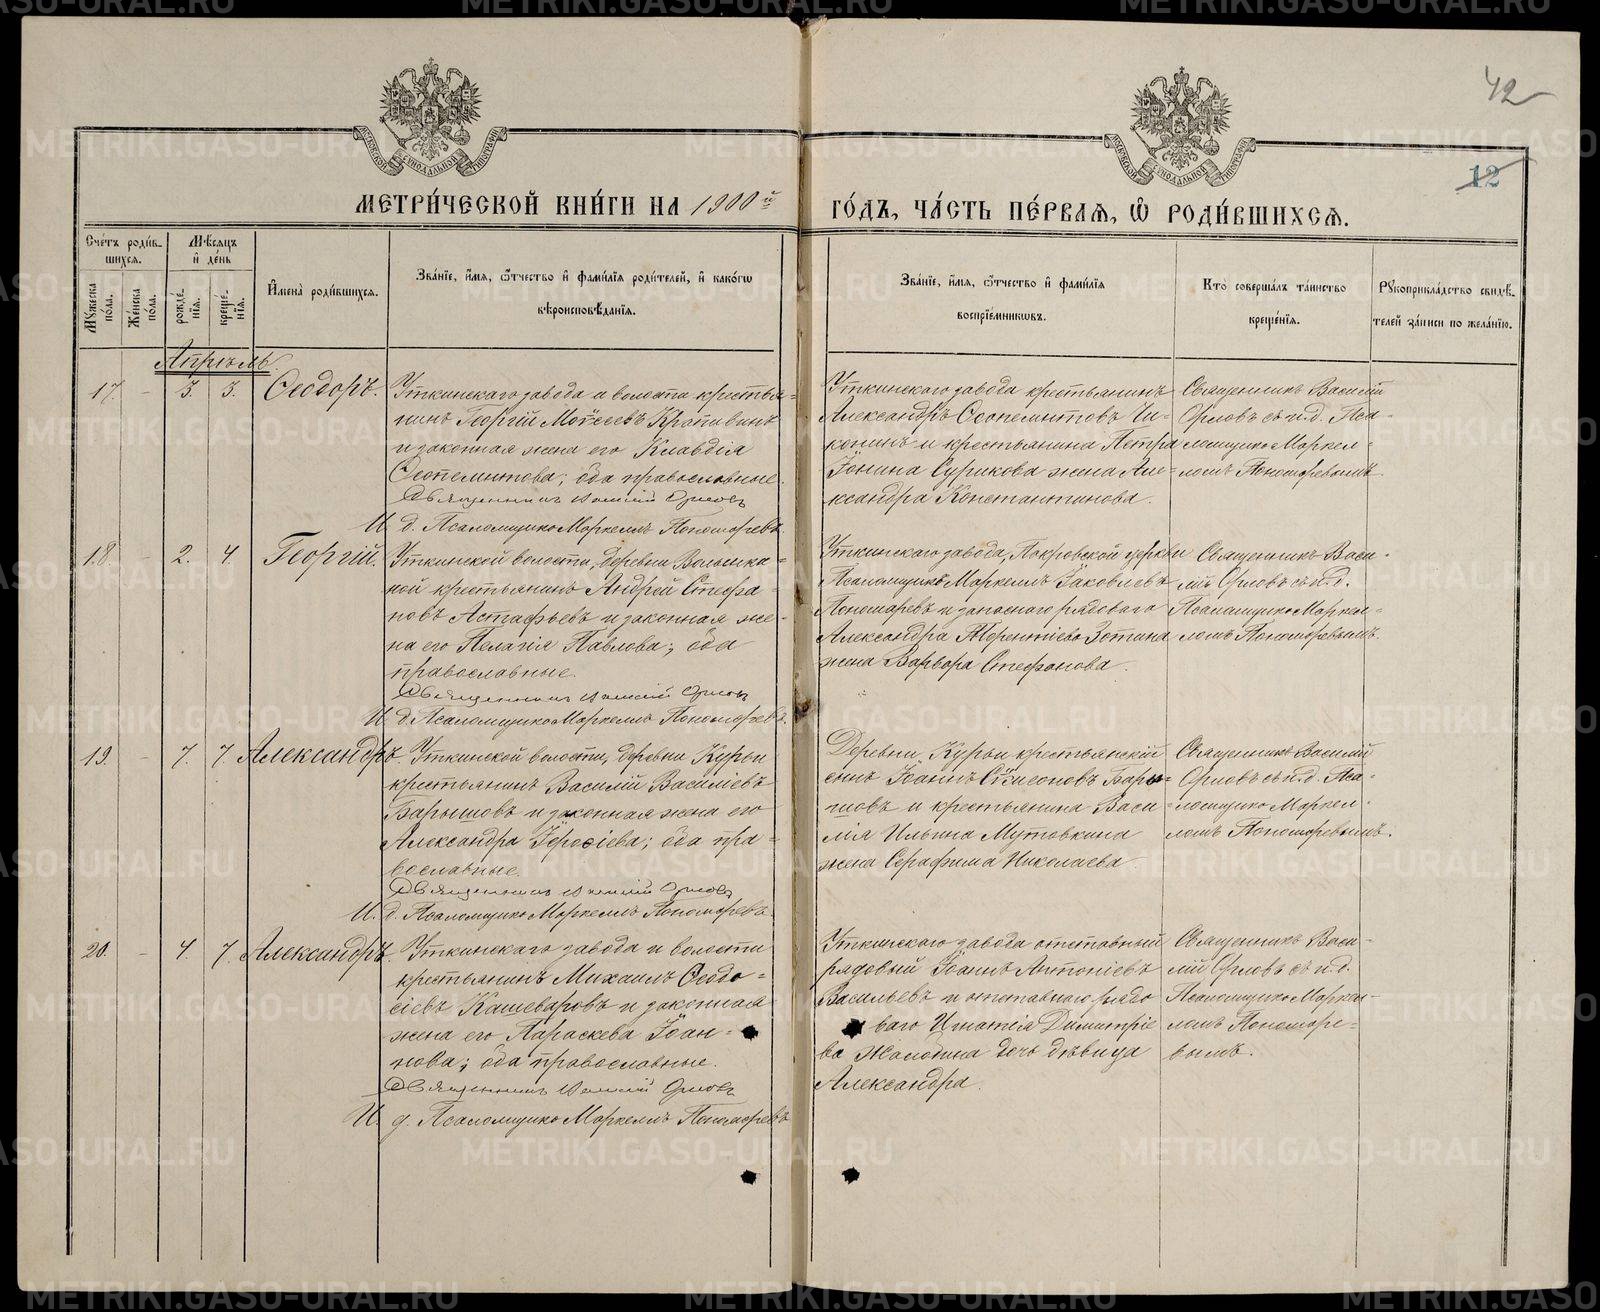 42
12
МОСКОВСКОЙ СѴНОДАЛЬНОЙ ТИПОГРАФІИ
МОСКОВСКОЙ СѴНОДАЛЬНОЙ ТИПОГРАФІИ
МЕТРИ́ЧЕСКОЙ КНИ́ГИ НА 1900й
ГО́ДЪ, ЧА́СТЬ ПЕ́РВАѦ, Ѽ РОДИ́ВШИХСѦ.
Сче́тъ роди́в-
шихсѧ.
Мꙋ́жеска
по́ла.
Же́нска
по́ла.
Мѣ́сѧцъ
и҆ де́нь
рожде́-
нїѧ.
креще́-
нїѧ.
И҆мена̀ роди́вшихсѧ.
Зва́нїе, и҆́мѧ, ѻ҆́тчество и҆ фами́лїѧ роди́телей, и҆ како́гѡ
вѣроисповѣ́данїѧ.
Зва́нїе, и҆́мѧ, ѻ҆́тчество и҆ фами́лїѧ
воспрїе́мникѡвъ.
Кто̀ соверша́лъ та́инство
креще́нїѧ.
Рꙋкоприкла́дство свидѣ́-
телей за́писи по жела́нїю.
Апрѣль.
17. - 3. 3. Ѳеодоръ.
Уткинскаго завода и волости крестья-
нинъ Георгій Моѵсеевъ Крапивинъ
и законная жена его Клавдія
Ѳеопемптова; оба православные.
Священникъ Василій Орловъ
И. д. Псаломщика Маркеллъ Пономаревъ
Уткинскаго завода крестьянинъ
Александръ Ѳеопемптовъ Чи-
конинъ и крестьянина Петра
Іоанина Сурикова жена Але-
ксандра Константинова.
Священникъ Василій
Орловъ съ и.д. Пса-
ломщика Маркел-
ломъ Пономаревымъ.
18. - 2. 4. Георгій.
Уткинской волости, деревни
ной крестьянинъ Андрей Стефа-
новъ Астафьевъ и законная же-
на его Пелагія Павлова; оба
православные.
Священникъ Василій Орловъ
И. д. Псаломщика Маркеллъ Пономаревъ.
Уткинскаго завода, Покровской церкви
Псаломщикъ Маркеллъ Іаковлевъ
Пономаревъ и запаснаго рядоваго
Александра Терентіева Зотина
жена Варвара Стефанова.
Священникъ Васи-
лій Орловъ съ и.д.
Псаломщика Маркел-
ломъ Пономаревымъ.
19. - 7. 7. Александръ.
Уткинской волости, деревни Курьи
крестьянинъ Василій Василіевъ
Барышовъ и законная жена его
Александра Іероѳіева; оба пра-
вославные.
Священникъ Василій Орловъ
И. д. Псаломщика Маркеллъ Пономаревъ.
Деревни Курьи крестьянскій
сынъ Іоаннъ Сѵмеоновъ Бары-
шовъ и крестьянина Васи-
лія Ильина Мутовкина
жена Серафима Николаева.
Священникъ Василій
Орловъ съ и.д. Пса-
ломщика Маркел-
ломъ Пономаревымъ.
20. - 4. 7. Александръ.
Уткинскаго завода и волости
крестьянинъ Михаилъ Ѳеодо-
сіевъ Кашеваровъ и законная
жена его Параскева Іоан-
нова; оба православные.
Священникъ Василій Орловъ
И. д. Псаломщика Маркеллъ Пономаревъ
Уткинскаго завода отставный
рядовый Іоаннъ Антоніевъ
Васильевъ и отставнаго рядо
ваго Игнатія Димитріе
ва Жолобина дочь дѣвица
Александра.
Священникъ Васи-
лій Орловъ съ и.д.
Псаломщика Маркел-
ломъ Пономаре-
вымъ.
METRIKI.GASO-URAL.RU